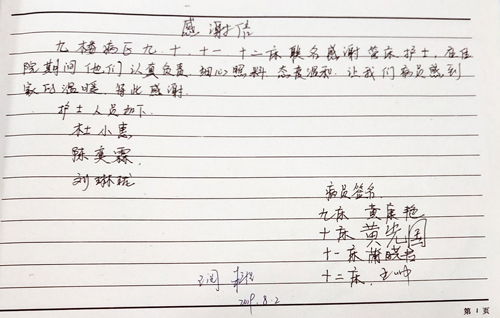 感谢信
九楼病区九 十 十一 十二床联名感谢管床护士,在住
院期间他们认真负责 细心照料 态度温和.让我们病员感到
家的温暖.特此感谢.
护士人员如下.
杜小惠
陈奕霖.
刘琳珑
病员签名.
九床 黄康艳
十床 黄光国
十一床 晓书
十二床.王坤
2019.8.2
第 1 页